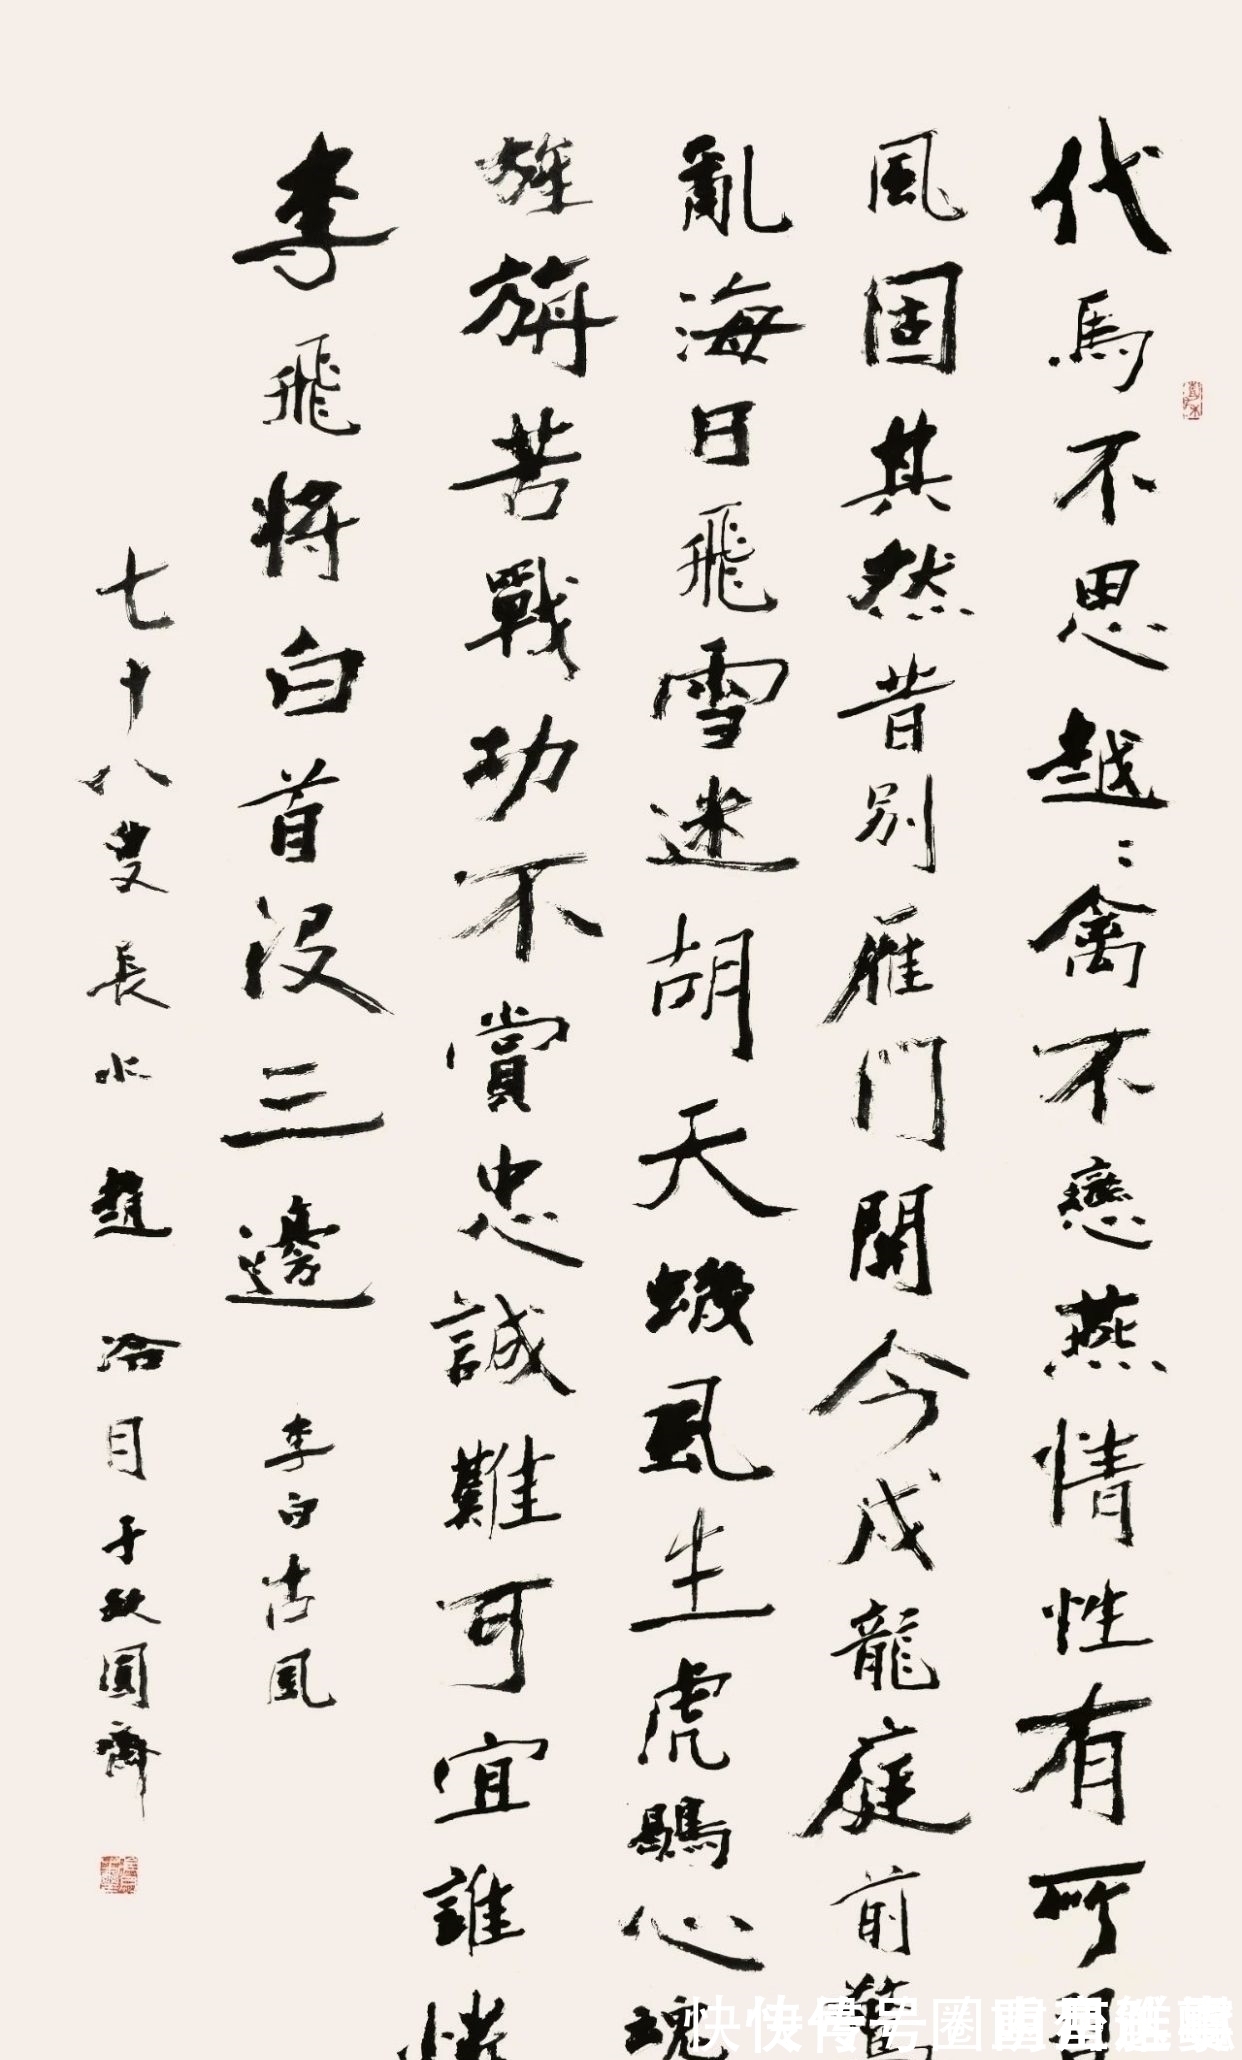 代馬不思越〻禽不戀燕情性有所習
風固其然昔別雁門關今戍龍庭前驚
亂海日飛雪迷胡天蟣虱生虎鶡心魂
旌旃苦戰功不賞忠誠難可宜誰憐
李飛將白首没三邊
李白古風
七十八叟長水趙冷月于缺圓齋